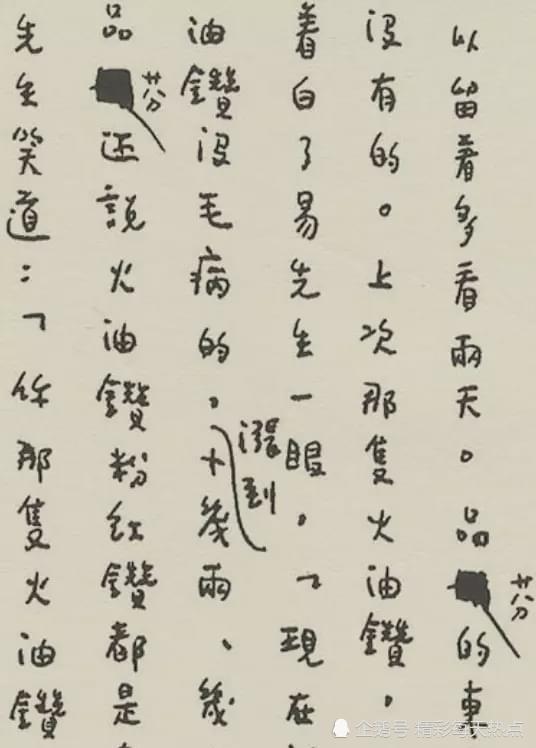 以留着多看兩天。品芬的東
没有的。上次那隻火油鑽,
着白了易先生一眼,「現在
油鑽没毛病的,漲到十幾兩、幾
品芬还說火油鑽粉紅鑽都是
先生笑道:「你那隻火油鑽
企鹅号 精彩每天热点